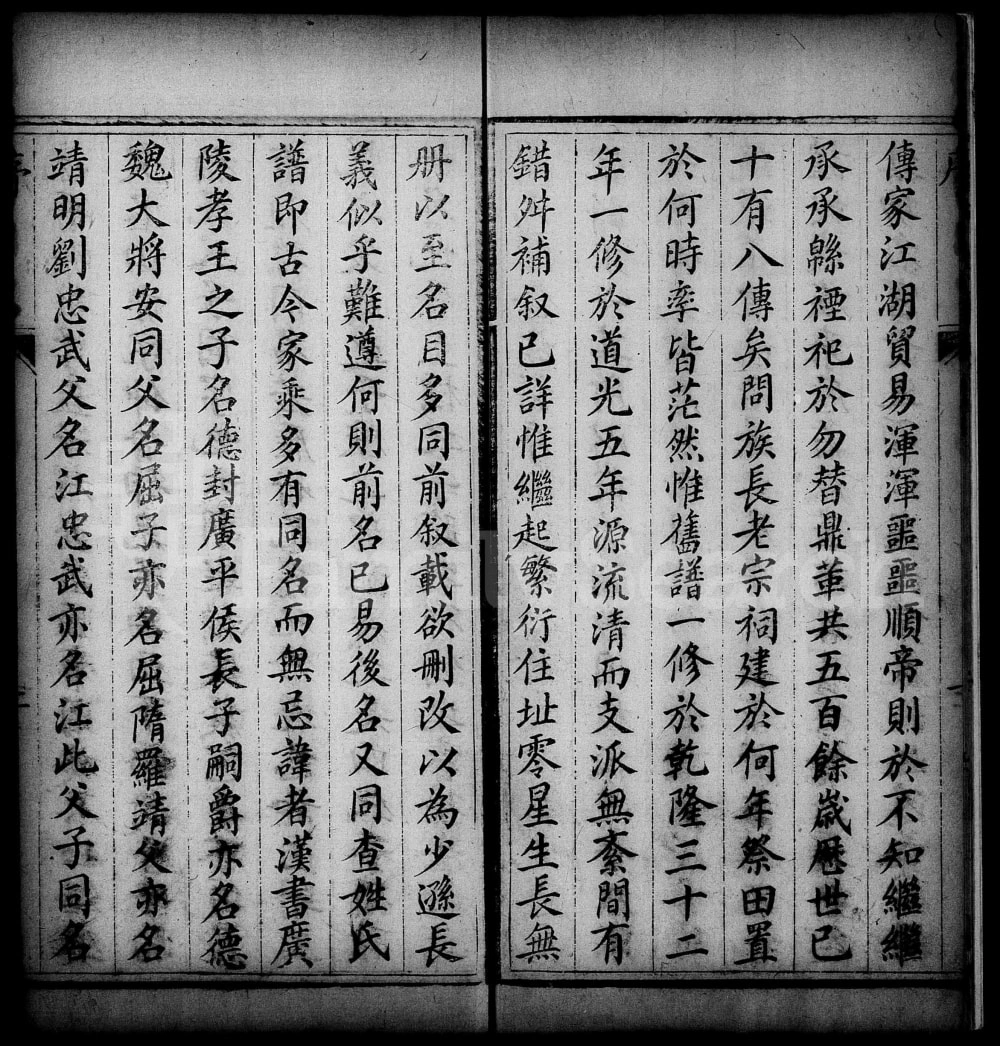 傳家江湖貿易渾渾噩噩順帝則於不知繼繼
承承緜禋祀於勿替鼎革共五百餘歲歷世已
十有八傳矣問族長老宗祠建於何年祭田置
於何時率皆茫然惟舊譜一修於乾隆三十二
年一修於道光五年源流清而支派無紊間有
錯舛補叙已詳惟繼起繁衍住址零星生長無
册以至名目多同前叙載欲刪改以為少遜長
義似乎難遵何則前名已易後名又同查姓氏
譜即古今家乘多有同名而無忌諱者漢書廣
陵孝王之子名德封廣平侯長子嗣爵亦名德
魏大將安同父名屈子亦名屈隋羅靖父亦名
靖明劉忠武父名江忠武亦名江此父子同名